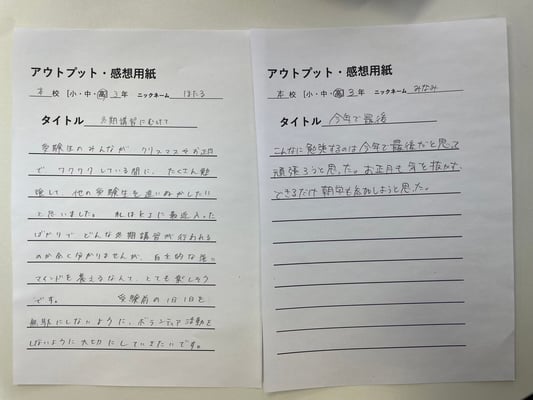 アウトプット・感想用紙
本校 [小・中・高] 3年 ニックネーム ほたる
タイトル 冬期講習にむけて
受験生のみんなが クリスマスやお正月
でワクワクしている間に、たくさん勉
強して 他の受験生を追いぬかしたい
と思いました。 私は
に最近入った
ばかりで どんな冬期講習が行われる
のか全く分かりませんが、
マインドを
えるなんて、とても楽しそう
です。 受験前の1日1日を
無駄にしないように、ボランティア活動を
しないように大切にしていきたいです。
アウトプット・感想用紙
本校 [小・中・高] 3年 ニックネーム みなみ
タイトル 今年で最後
こんなに勉強するのは今年で最後だと思って
頑張ろうと思った。お正月も気を抜かず、
できるだけ朝学も参加しようと思った。